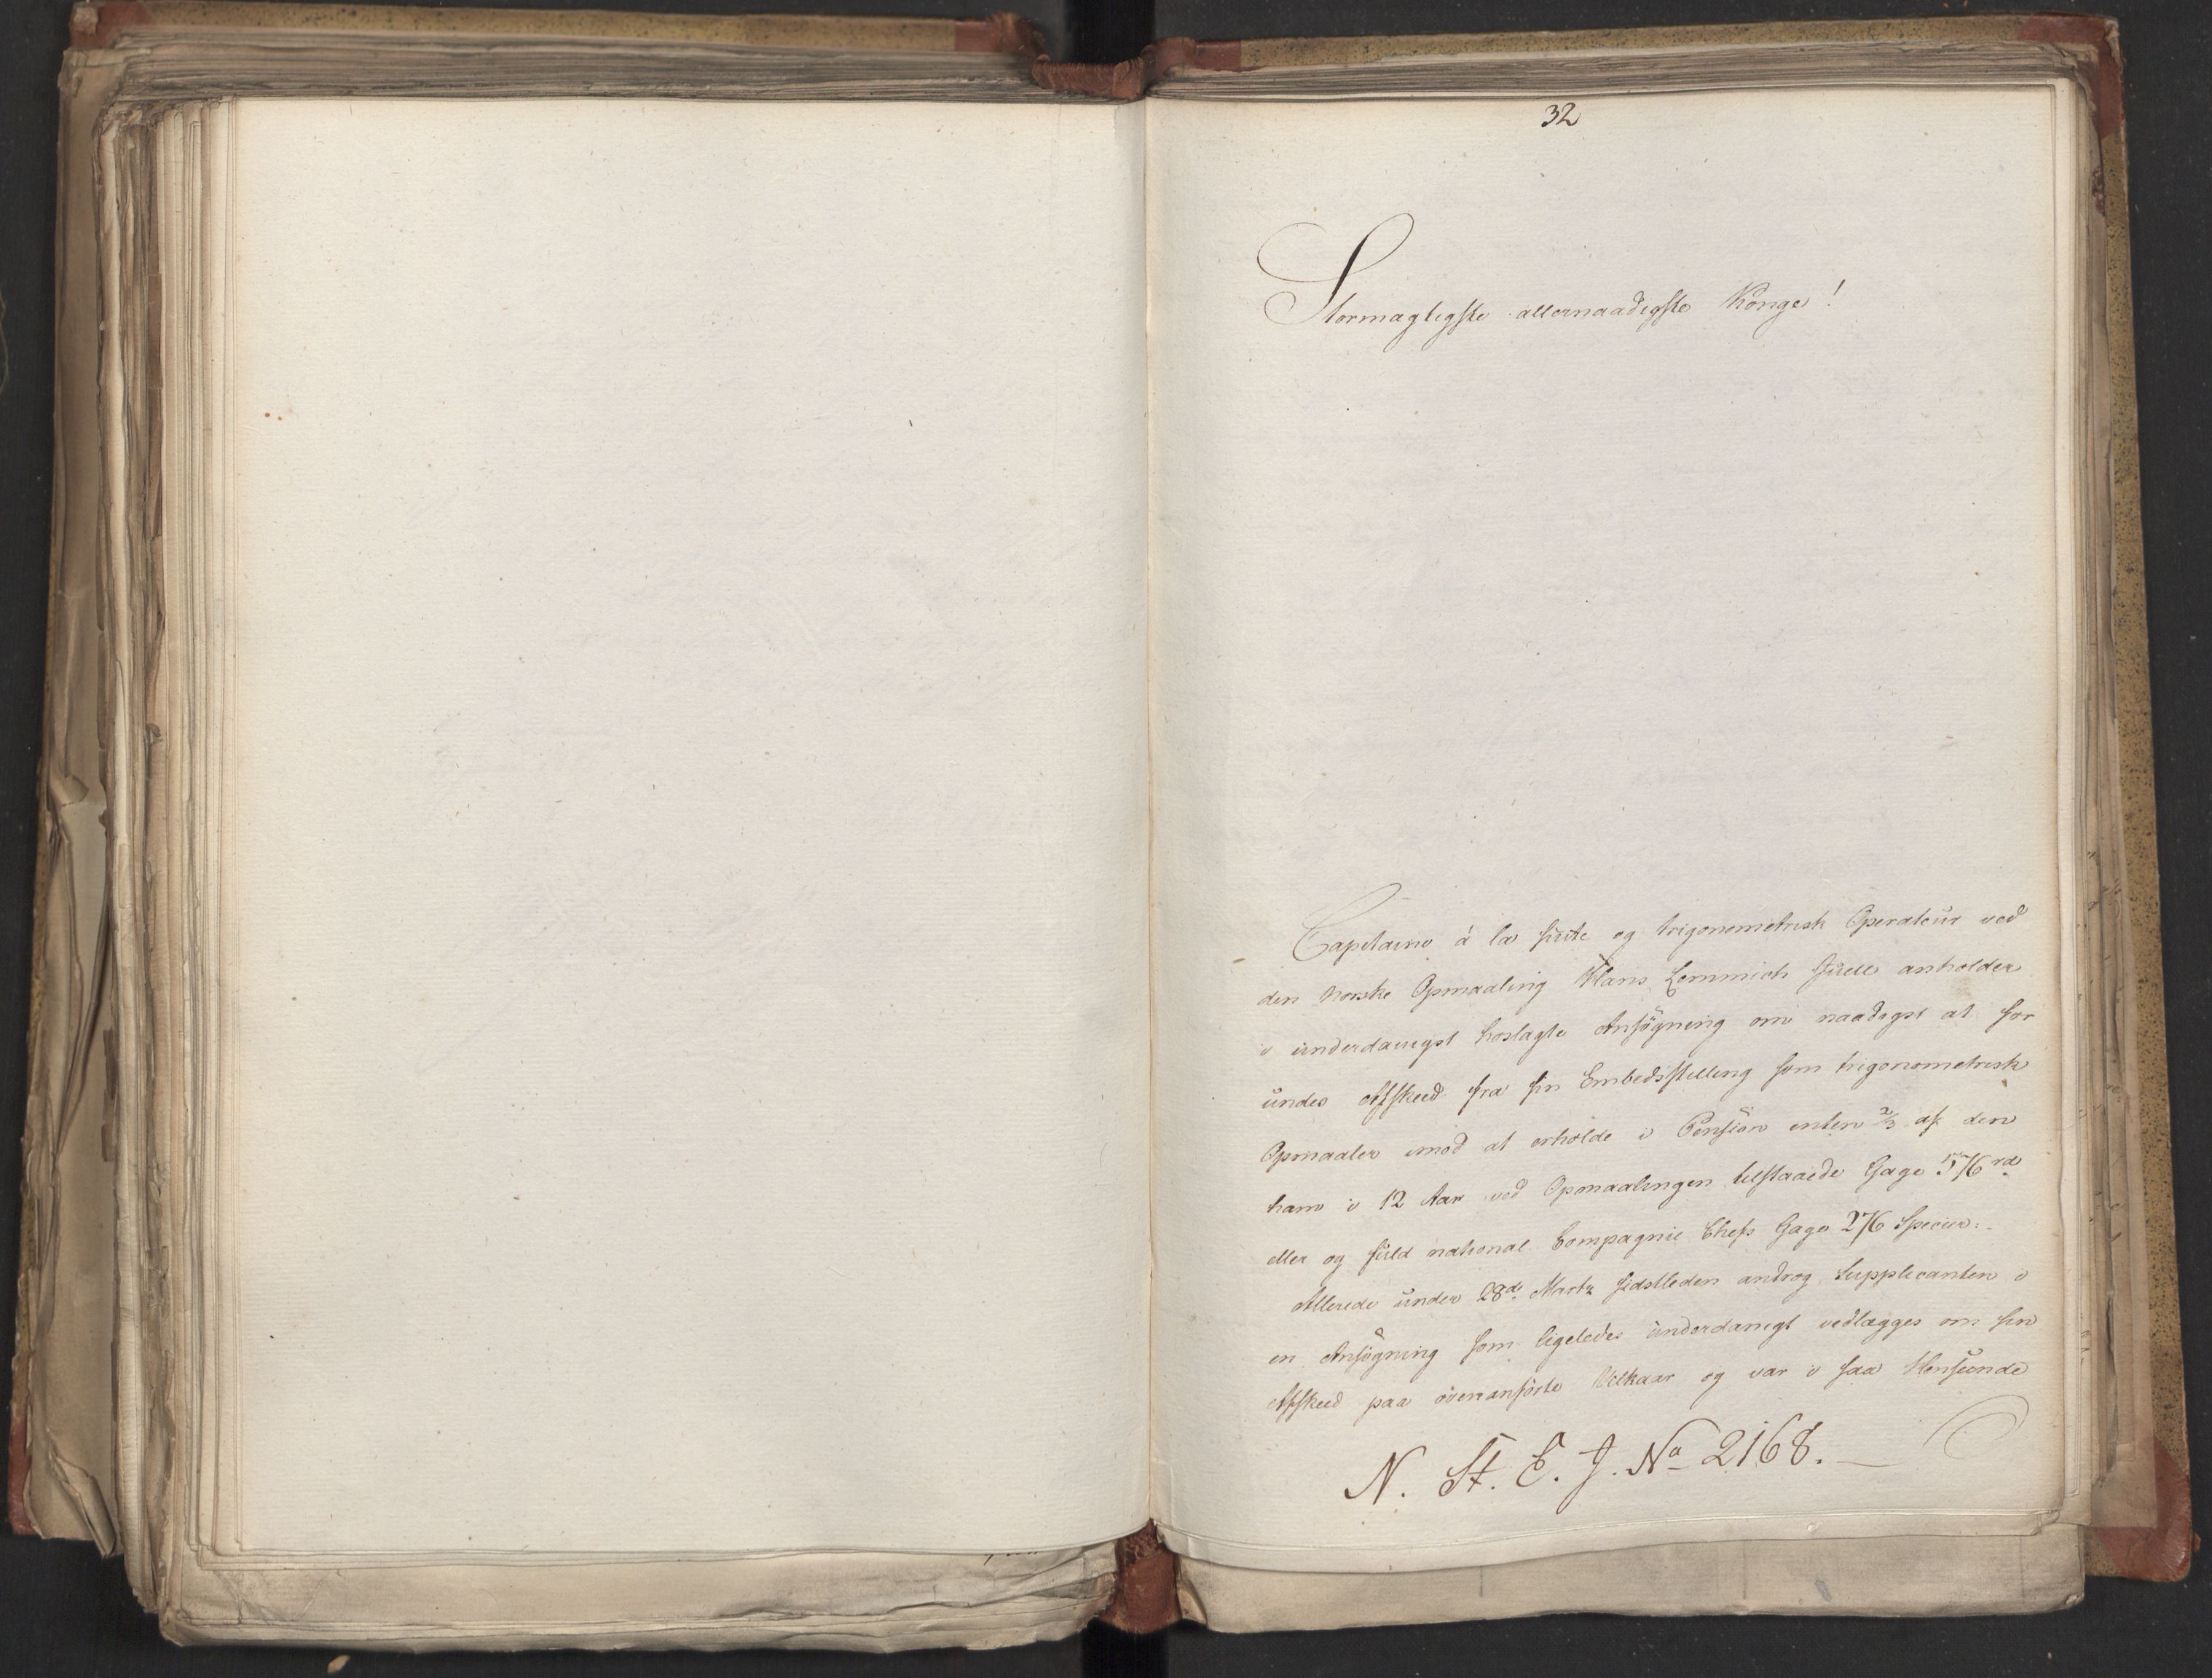 32
Stormagtigste allernaadigste Konge!
Capitaine á la suite og trigonometrisk Operateur ved
den norske Opmaaling Hans Lemmich Juell anholder
i underdanigst hoslagte Ansøgning om naadigst at for
undes Afskeed fra sin Embedsstilling som trigonometrisk
Opmaaler imod at erholde i Pension enten 2/3 af den
ham i 12 Aar ved Opmaalingen tilstaaede Gage 576 rd
eller og fuld national Compagnie Chefs Gage 276 Specier.-
Allerede under 28de Martz sidstleden androg Supplicanten i
en Ansøgning som ligeledes underdanigt vedlægges om sin
Afskeed paa ovenanførte Vilkaar og var i saa Henseende
N. St. E. J. No 2168.